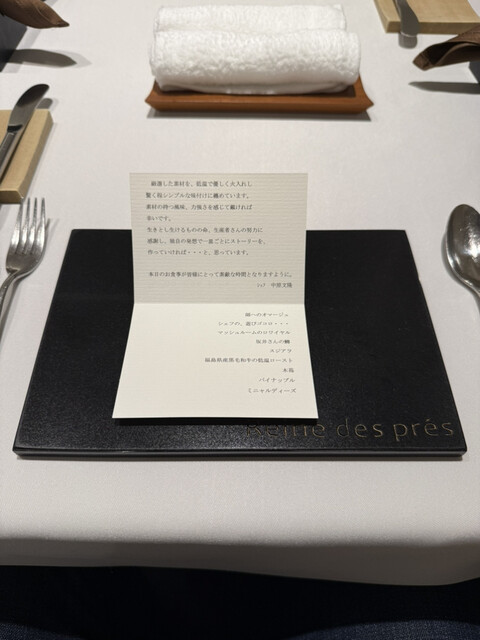 厳選した素材を、低温で優しく火入れし
驚く程シンプルな味付けに纏めています。
素材の持つ風味、力強さを感じて戴ければ
幸いです。
生きとし生けるものの命、生産者さんの努力に
感謝し、独自の発想で一皿ごとにストーリーを、
作っていければ・・・と、思っています。
本日のお食事が皆様にとって素敵な時間となりますように。
ｼｪﾌ 中原文隆
鮪へのオマージュ
シェフの、遊びゴコロ・・・
マッシュルームのロワイヤル
坂井さんの鱒
スジアラ
福島県産黒毛和牛の低温ロースト
木苺
パイナップル
ミニャルディーズ
Reine des prés